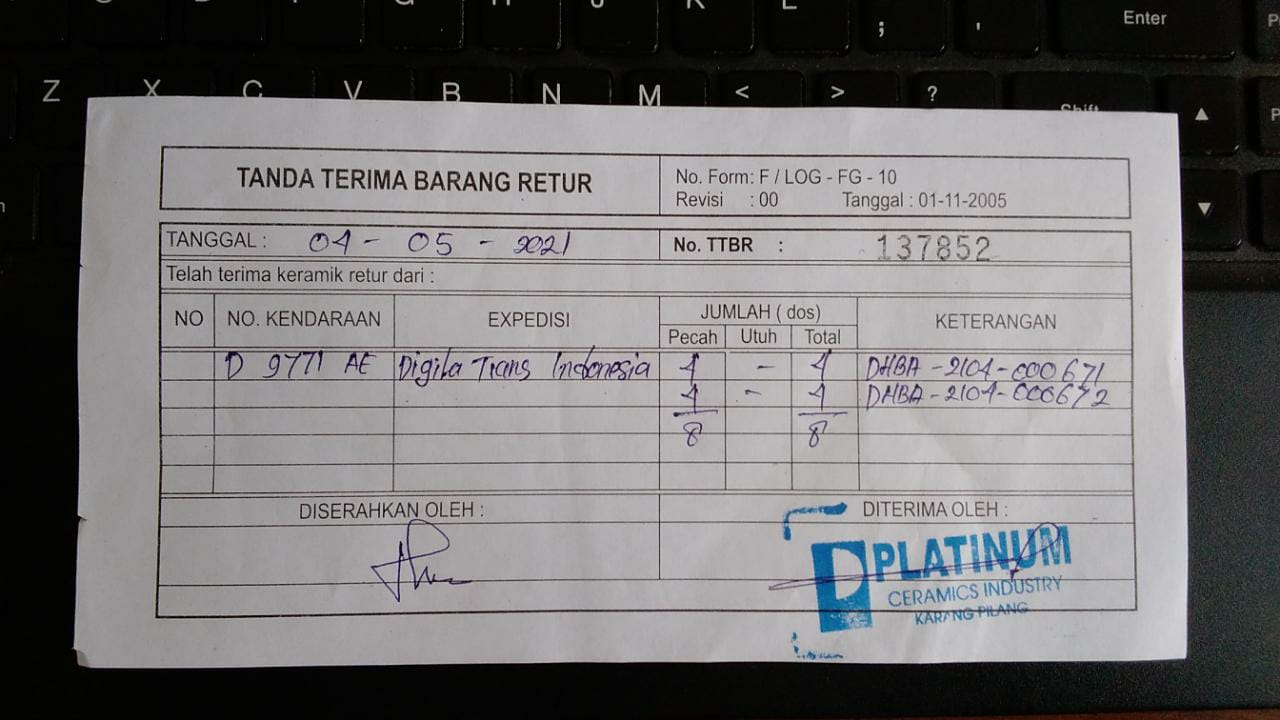 Enter
Z X C V B N M < > ?
Shift
TANDA TERIMA BARANG RETUR
No. Form: F / LOG - FG - 10
Revisi : 00 Tanggal : 01-11-2005
TANGGAL : 04 - 05 - 2021 No. TTBR : 137852
Telah terima keramik retur dari :
NO NO. KENDARAAN EXPEDISI JUMLAH ( dos) KETERANGAN
Pecah Utuh Total
D 9771 AE Digita Trans Indonesia 4 - 4 DHBA - 2104 - 000671
4 - 4 DHBA - 2104 - 000672
8 8
DISERAHKAN OLEH : DITERIMA OLEH :
PLATINUM
CERAMICS INDUSTRY
KARANG PILANG